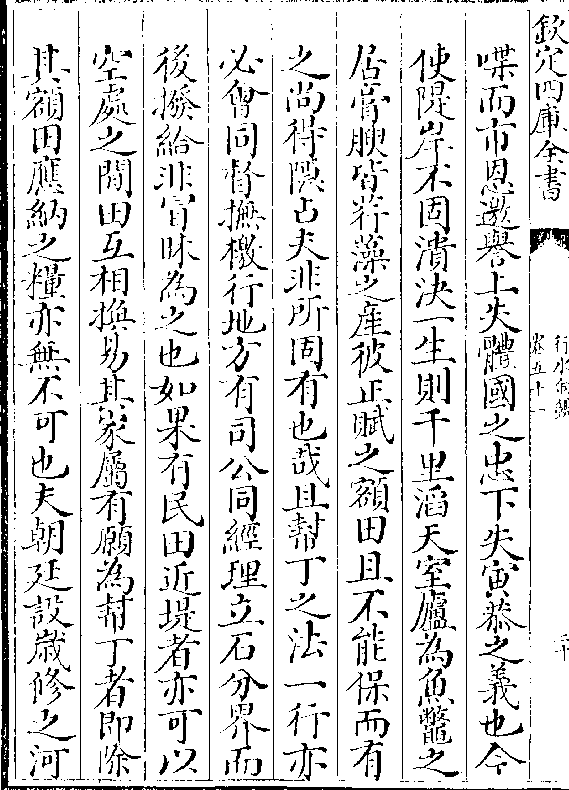 欽定四庫全書
行水金鑑
卷五十一
二十
喋而市恩邀譽上失體國之忠下失寅恭之義也今
使隄岸不固潰決一生則千里滔天室廬為魚鼈之
居膏腴皆荇藻之產彼正賦之額田且不能保而有
之尚得隱占夫非所固有也哉且幇丁之法一行亦
必會同督撫檄行地方有司公同經理立石分界而
後撥給非冐昧為之也如果有民田近堤者亦可以
空處之閒田互相換易其家屬有願為幇丁者即除
其額田應納之糧亦無不可也夫朝廷設嵗修之河